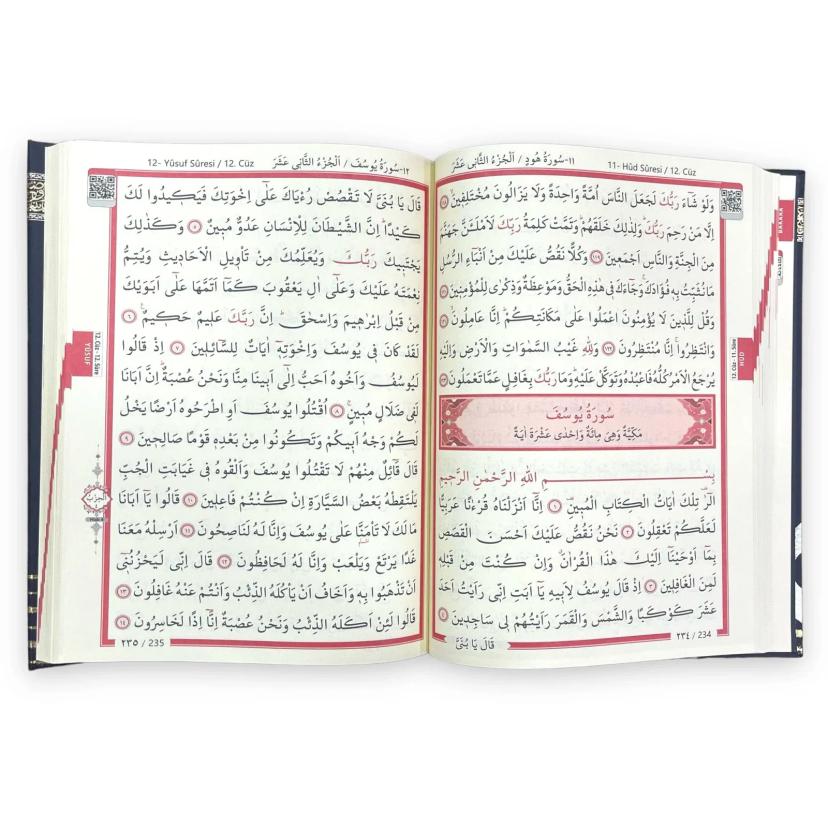 ١١-سُورَةُ هُودٍ / اَلْجُزْءُ الثَّانِي عَشَرَ 11- Hûd Sûresi / 12. Cüz
وَلَوْ شَاءَ رَبُّكَ لَجَعَلَ النَّاسَ اُمَّةً وَاحِدَةً وَلَا يَزَالُونَ مُخْتَلِفِينَ ١١٨
اِلَّا مَنْ رَحِمَ رَبُّكَ وَلِذٰلِكَ خَلَقَهُمْ وَتَمَّتْ كَلِمَةُ رَبِّكَ لَاَمْلَـَٔنَّ جَهَنَّمَ
مِنَ الْجِنَّةِ وَالنَّاسِ اَجْمَعِينَ ١١٩ وَكُلًّا نَقُصُّ عَلَيْكَ مِنْ اَنْبَاءِ الرُّسُلِ
مَا نُثَبِّتُ بِهِ فُؤَادَكَ وَجَاءَكَ فِي هٰذِهِ الْحَقُّ وَمَوْعِظَةٌ وَذِكْرٰى لِلْمُؤْمِنِينَ ١٢٠
وَقُلْ لِلَّذِينَ لَا يُؤْمِنُونَ اعْمَلُوا عَلٰى مَكَانَتِكُمْ اِنَّا عَامِلُونَ ١٢١
وَانْتَظِرُوا اِنَّا مُنْتَظِرُونَ ١٢٢ وَلِلّٰهِ غَيْبُ السَّمٰوَاتِ وَالْاَرْضِ وَاِلَيْهِ
يُرْجَعُ الْاَمْرُ كُلُّهُ فَاعْبُدْهُ وَتَوَكَّلْ عَلَيْهِ وَمَا رَبُّكَ بِغَافِلٍ عَمَّا تَعْمَلُونَ ١٢٣
سُورَةُ يُوسُفَ
مَكِّيَّةٌ وَهِيَ مِائَةٌ وَاِحْدٰى عَشْرَةَ اٰيَةً
بِسْمِ اللّٰهِ الرَّحْمٰنِ الرَّحِيمِ
الٓرٰ تِلْكَ اٰيَاتُ الْكِتَابِ الْمُبِينِ ١ اِنَّا اَنْزَلْنَاهُ قُرْءٰنًا عَرَبِيًّا
لَعَلَّكُمْ تَعْقِلُونَ ٢ نَحْنُ نَقُصُّ عَلَيْكَ اَحْسَنَ الْقَصَصِ
بِمَا اَوْحَيْنَا اِلَيْكَ هٰذَا الْقُرْاٰنَ وَاِنْ كُنْتَ مِنْ قَبْلِهِ
لَمِنَ الْغَافِلِينَ ٣ اِذْ قَالَ يُوسُفُ لِاَبِيهِ يَا اَبَتِ اِنِّي رَاَيْتُ اَحَدَ
عَشَرَ كَوْكَبًا وَالشَّمْسَ وَالْقَمَرَ رَاَيْتُهُمْ لِي سَاجِدِينَ ٤
قَالَ يَا بُنَيَّ
٢٣٤ / 234
12. Cüz - 11. Sûre
HÛD
12- Yûsuf Sûresi / 12. Cüz ١٢-سُورَةُ يُوسُفَ / اَلْجُزْءُ الثَّانِي عَشَرَ
قَالَ يَا بُنَيَّ لَا تَقْصُصْ رُءْيَاكَ عَلٰى اِخْوَتِكَ فَيَكِيدُوا لَكَ
كَيْدًا اِنَّ الشَّيْطَانَ لِلْاِنْسَانِ عَدُوٌّ مُبِينٌ ٥ وَكَذٰلِكَ
يَجْتَبِيكَ رَبُّكَ وَيُعَلِّمُكَ مِنْ تَأْوِيلِ الْاَحَادِيثِ وَيُتِمُّ
نِعْمَتَهُ عَلَيْكَ وَعَلٰى اٰلِ يَعْقُوبَ كَمَا اَتَمَّهَا عَلٰى اَبَوَيْكَ
مِنْ قَبْلُ اِبْرٰهِيمَ وَاِسْحٰقَ اِنَّ رَبَّكَ عَلِيمٌ حَكِيمٌ ٦
لَقَدْ كَانَ فِي يُوسُفَ وَاِخْوَتِهِ اٰيَاتٌ لِلسَّائِلِينَ ٧ اِذْ قَالُوا
لَيُوسُفُ وَاَخُوهُ اَحَبُّ اِلٰى اَبِينَا مِنَّا وَنَحْنُ عُصْبَةٌ اِنَّ اَبَانَا
لَفِي ضَلَالٍ مُبِينٍ ٨ اُقْتُلُوا يُوسُفَ اَوِ اطْرَحُوهُ اَرْضًا يَخْلُ
لَكُمْ وَجْهُ اَبِيكُمْ وَتَكُونُوا مِنْ بَعْدِهِ قَوْمًا صَالِحِينَ ٩
قَالَ قَائِلٌ مِنْهُمْ لَا تَقْتُلُوا يُوسُفَ وَاَلْقُوهُ فِي غَيَابَتِ الْجُبِّ
يَلْتَقِطْهُ بَعْضُ السَّيَّارَةِ اِنْ كُنْتُمْ فَاعِلِينَ ١٠ قَالُوا يَا اَبَانَا
مَا لَكَ لَا تَأْمَنَّا عَلٰى يُوسُفَ وَاِنَّا لَهُ لَنَاصِحُونَ ١١ اَرْسِلْهُ مَعَنَا
غَدًا يَرْتَعْ وَيَلْعَبْ وَاِنَّا لَهُ لَحَافِظُونَ ١٢ قَالَ اِنِّي لَيَحْزُنُنِي
اَنْ تَذْهَبُوا بِهِ وَاَخَافُ اَنْ يَأْكُلَهُ الذِّئْبُ وَاَنْتُمْ عَنْهُ غَافِلُونَ ١٣
قَالُوا لَئِنْ اَكَلَهُ الذِّئْبُ وَنَحْنُ عُصْبَةٌ اِنَّا اِذًا لَخَاسِرُونَ ١٤
٢٣٥ / 235
12. Cüz - 12. Sûre
YÛSUF
اَلْحِزْبُ